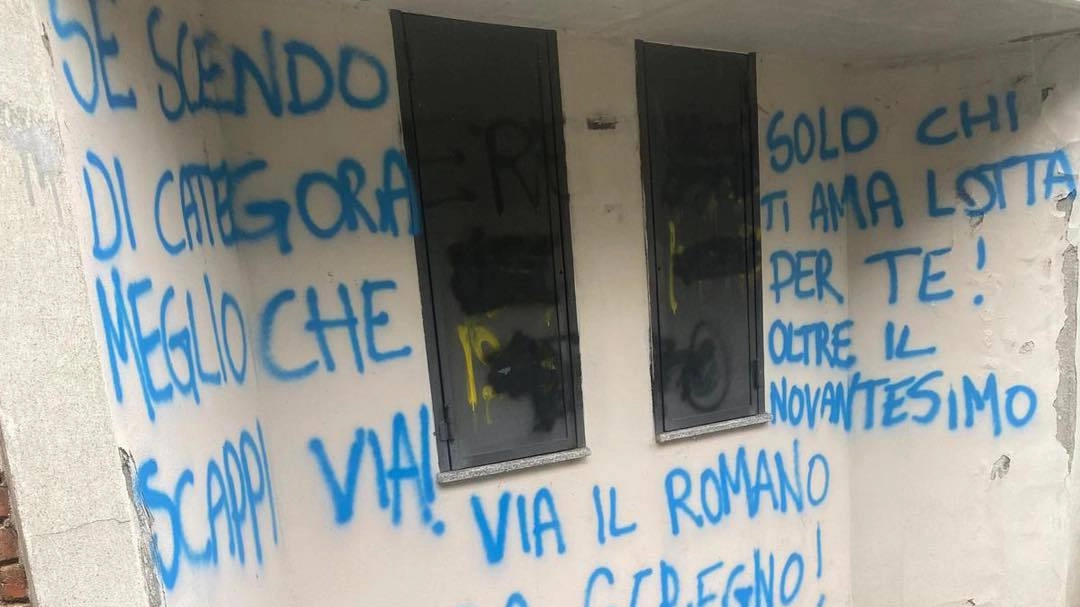 SE SCENDO
DI CATEGORIA
MEGLIO CHE
SCAPPI VIA!
SOLO CHI
TI AMA LOTTA
PER TE!
OLTRE IL
NOVANTESIMO
VIA IL ROMANO